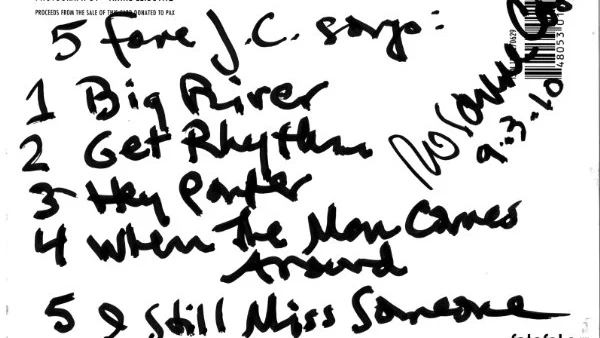 PROCEEDS FROM THE SALE OF THIS CARD DONATED TO PAX
5 fave J.C. songs:
1 Big River
2 Get Rhythm
3 Hey Porter
4 When The Man Comes
Around
5 I Still Miss Someone
9-3-10
48053